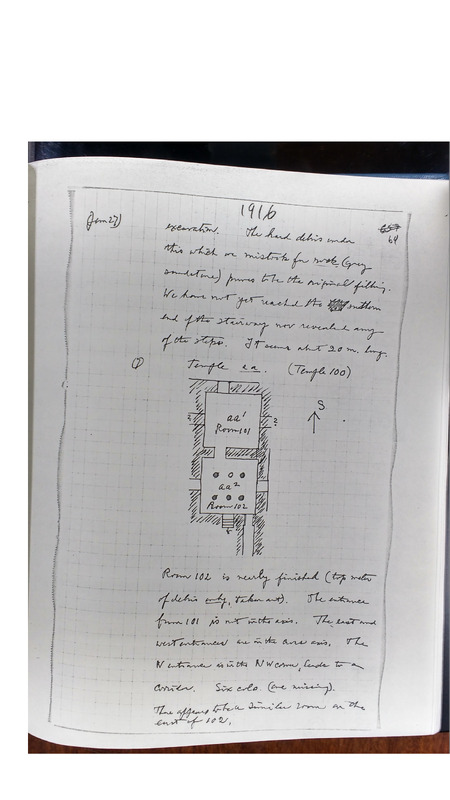 1916
(Jan 27)
64
excavation. The hard debris under
this which we mistook for rock (grey
sandstone) proves to be the original filling.
We have not yet reached the southern
end of the stairway nor revealed any
of the steps. It seems about 20 m. long.
Temple aa. (Temple 100)
S
aa¹
Room 101
?
?
aa²
Room 102
Room 102 is nearly finished (top meter
of debris only, taken out). The entrance
from 101 is not in the axis. The east and
west entrances are in the cross axis. The
N entrance is in the NW corner, leads to a
corridor. Six cols. (one missing).
There appears to be a similar room on the
east of 102.